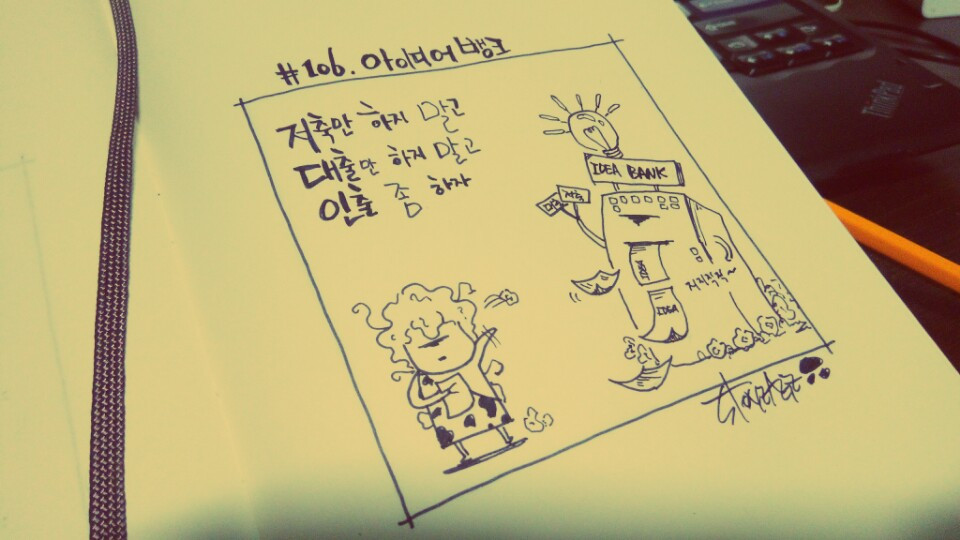 #106. 아이디어 뱅크
저축만 하지 말고
대출만 하지 말고
인출 좀 하자
IDEA BANK
저축
IDEA
IDEA
지지직직~
ThinkPad